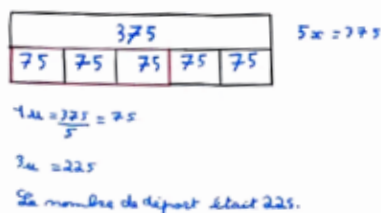 375 5x = 375
75 75 75 75 75
1u = 375/5 = 75
3u = 225
Le nombre de départ était 225.